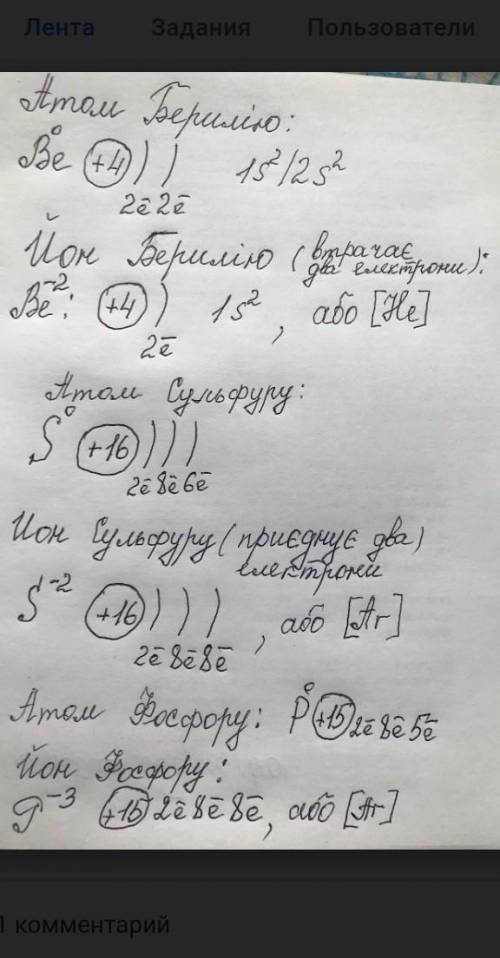 Лента Задания Пользователи
Атом Берилію:
Be⁰ (+4) ) ) 1s²/2s²
2ē 2ē
Йон Берилію (втрачає
два електрони):
Be⁻²: (+4) ) 1s², або [He]
2ē
Атом Сульфуру:
S⁰ (+16) ) ) )
2ē 8ē 6ē
Йон Сульфуру (приєднує два)
електрони
S⁻² (+16) ) ) ) , або [Ar]
2ē 8ē 8ē
Атом Фосфору: P⁰ (+15) 2ē 8ē 5ē
Йон Фосфору:
P⁻³ (+15) 2ē 8ē 8ē, або [Ar]
1 комментарий